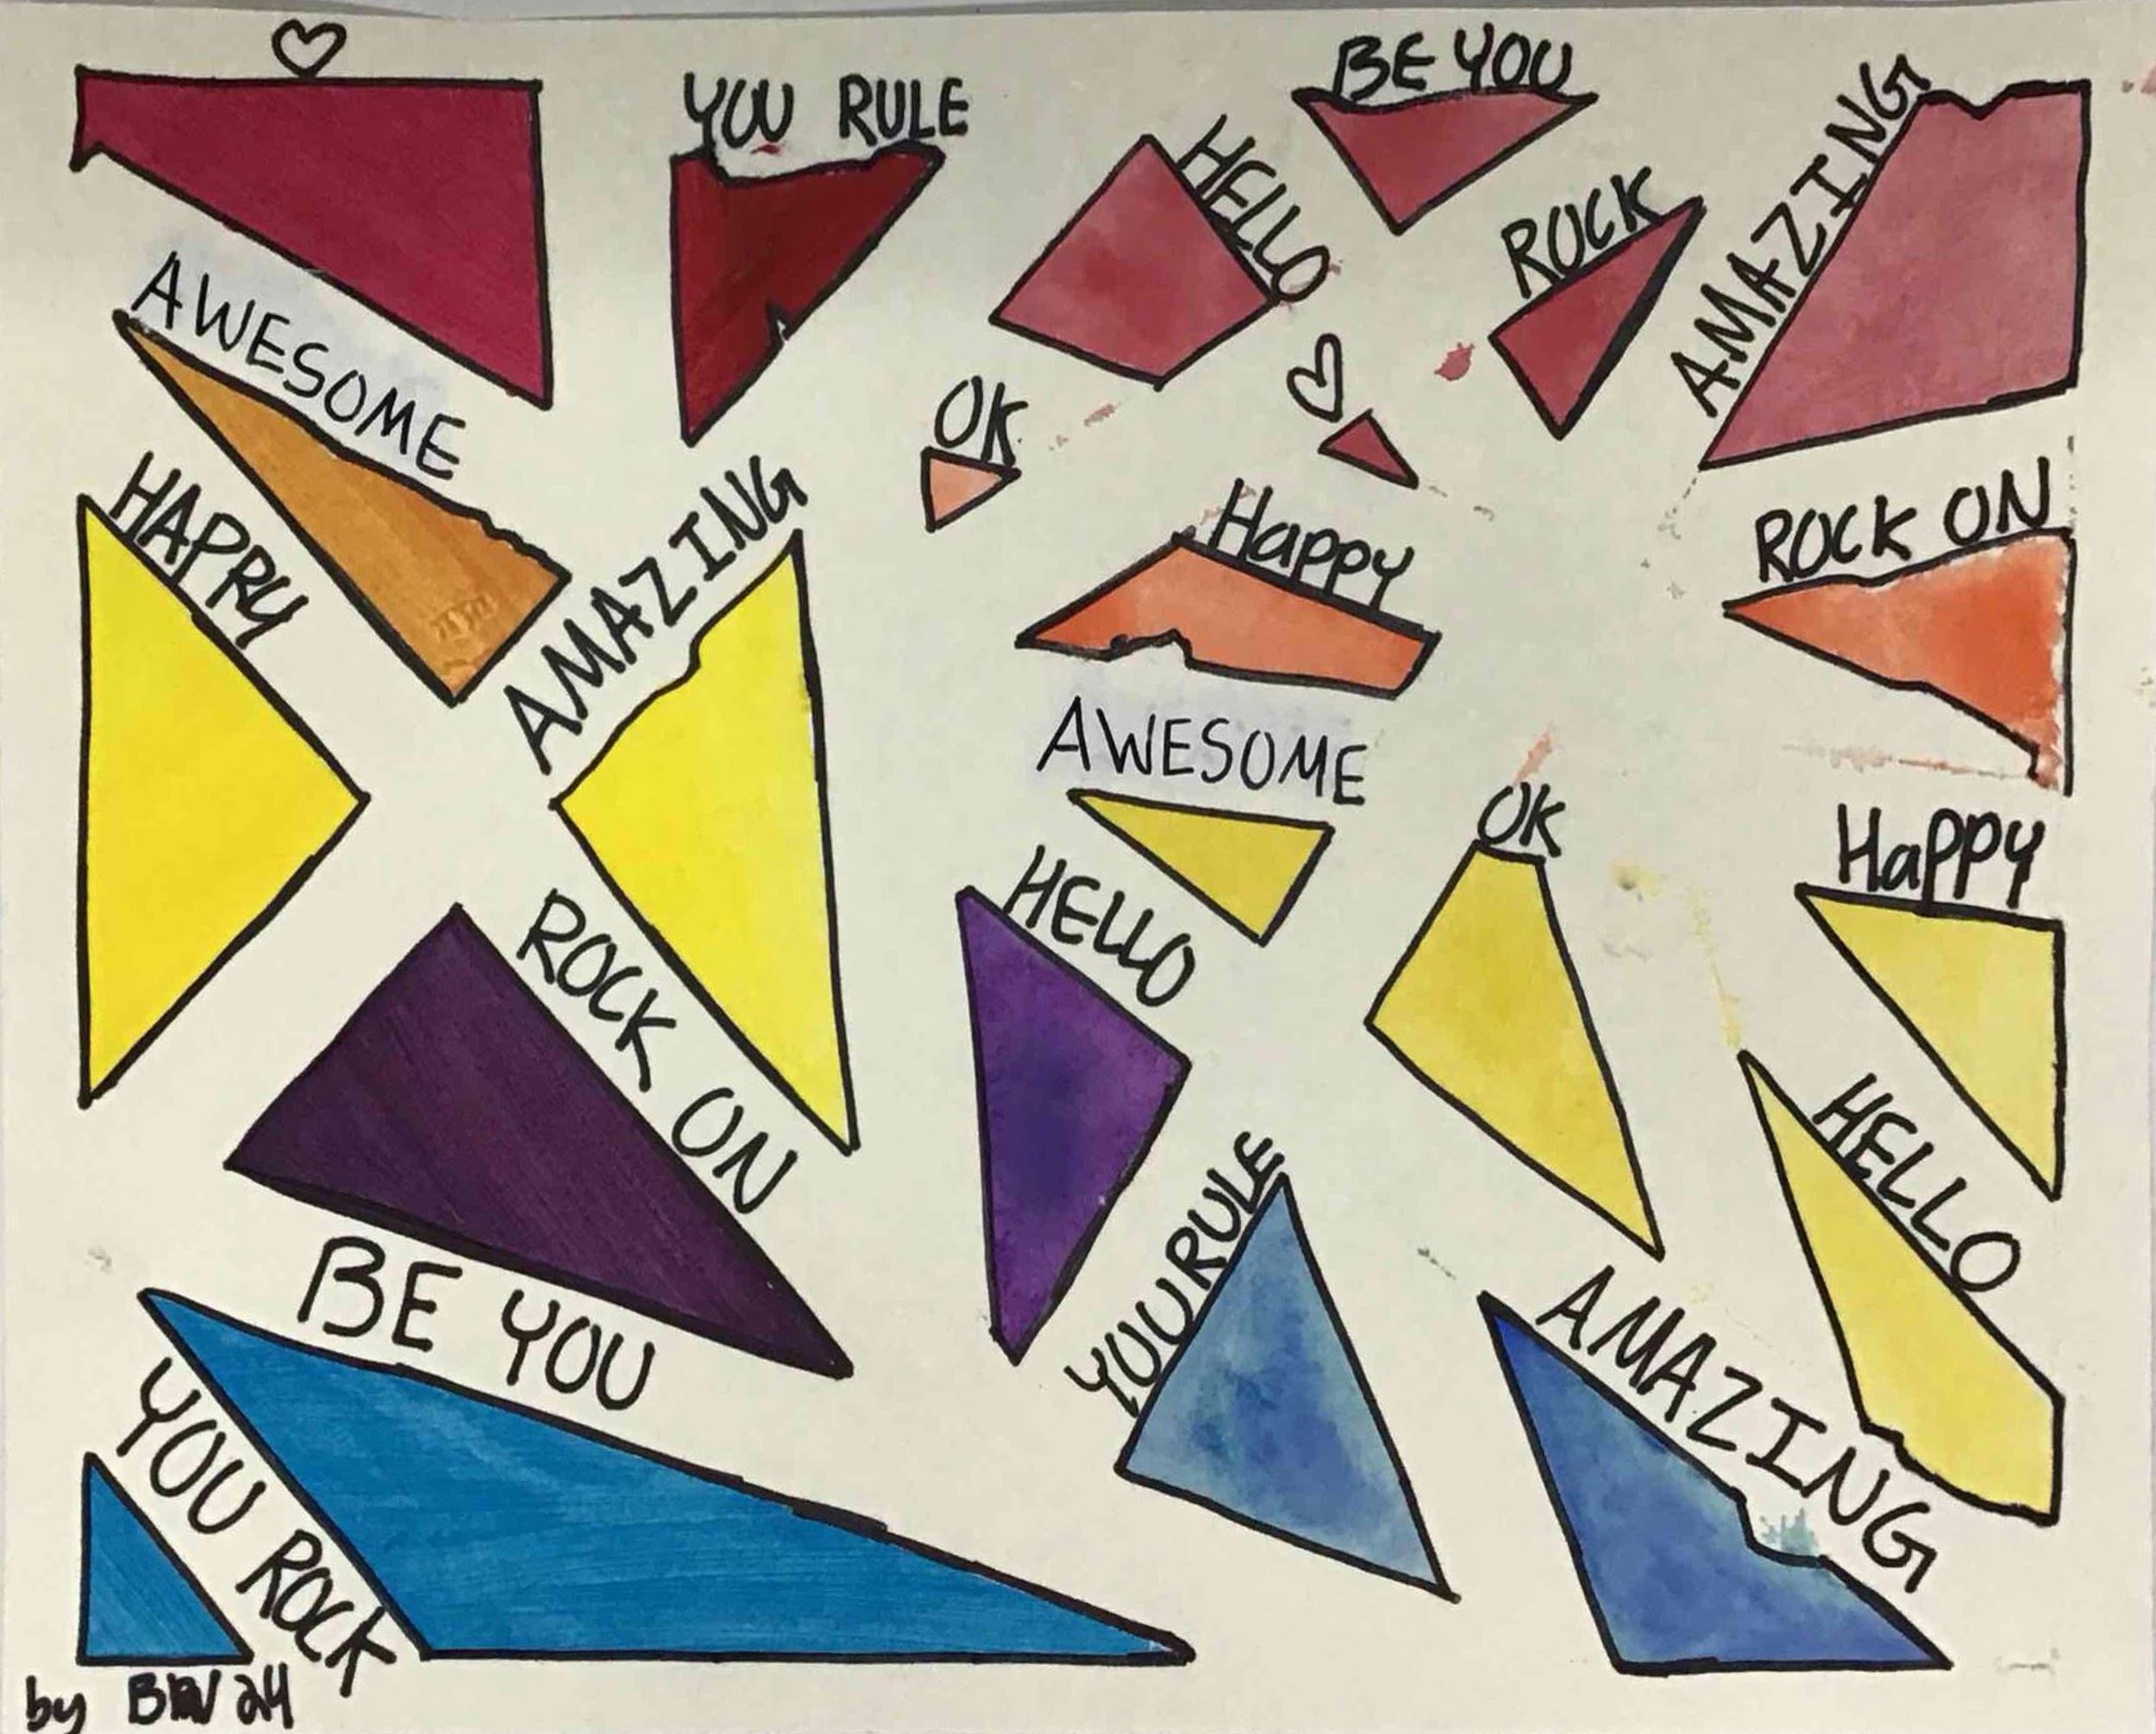 ♡
YOU RULE
BE YOU
HELLO
AMAZING
ROCK
AWESOME
♡
OK
HAPPY
AMAZING
Happy
ROCK ON
AWESOME
OK
Happy
HELLO
ROCK ON
HELLO
YOU RULE
BE YOU
AMAZING
YOU ROCK
by 24